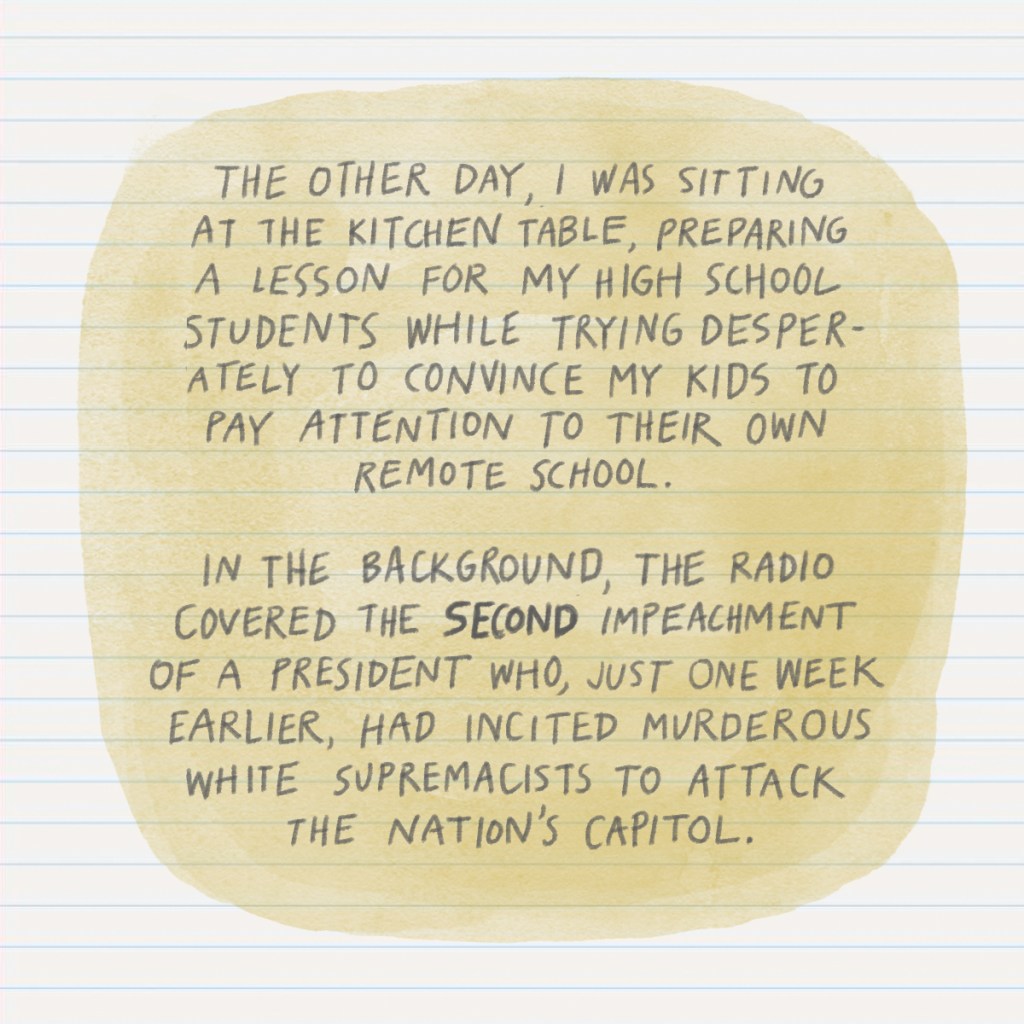 THE OTHER DAY, I WAS SITTING
AT THE KITCHEN TABLE, PREPARING
A LESSON FOR MY HIGH SCHOOL
STUDENTS WHILE TRYING DESPER-
ATELY TO CONVINCE MY KIDS TO
PAY ATTENTION TO THEIR OWN
REMOTE SCHOOL.
IN THE BACKGROUND, THE RADIO
COVERED THE SECOND IMPEACHMENT
OF A PRESIDENT WHO, JUST ONE WEEK
EARLIER, HAD INCITED MURDEROUS
WHITE SUPREMACISTS TO ATTACK
THE NATION'S CAPITOL.